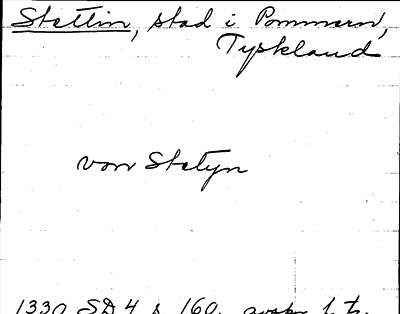 Stettin, stad i Pommern,
Tyskland
von Stetyn
1330 SD 4 s 160.